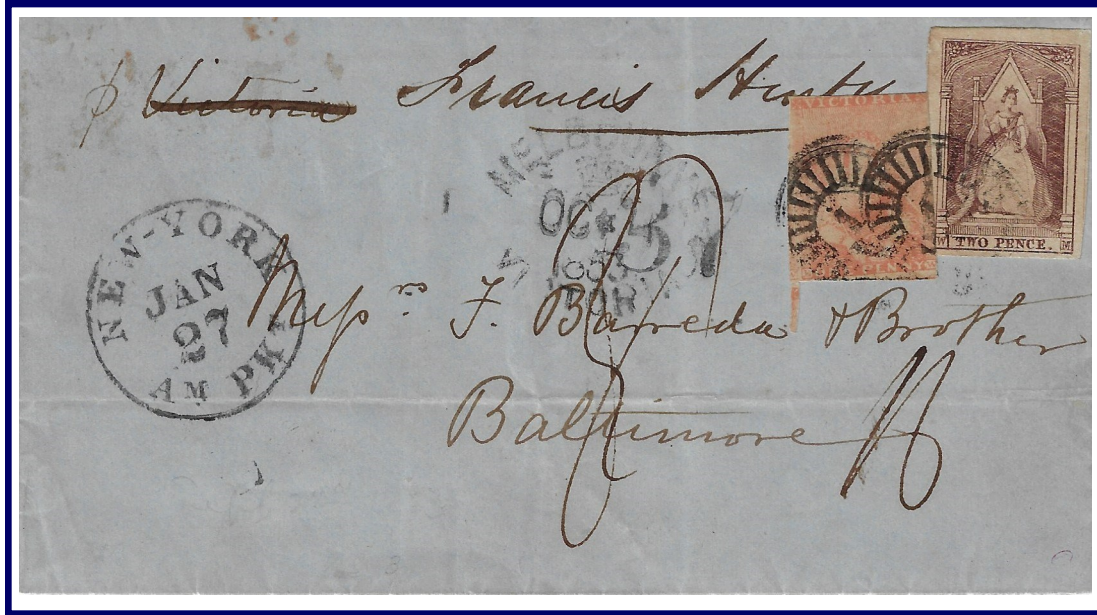 p Victoria Francis Henty
VICTORIA
PENNY
W TWO PENCE. M
MELBOURNE
OC 3
VICTORIA
NEW-YORK
JAN
27
AM PKT
Messrs F. Barreda & Brother
Baltimore